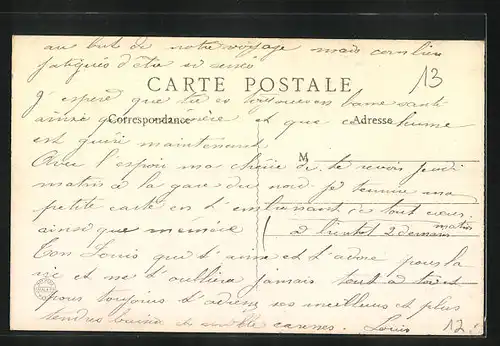 au but de notre voyage mais combien
fatigués d'être si
CARTE POSTALE
13
J'espère que tu es toujours en bonne santé
ainsi que mémère et que ce rhume
Correspondance
Adresse
est guéri maintenant
M
Avec l'espoir ma chérie de te revoir jeudi
matin à la gare du nord je termine ma
petite carte en t'embrassant de tout cœur
ainsi que mémère
à bientôt 2 demain
matin
Ton Louis que t'aime et t'adore pour la
vie et ne t'oubliera jamais tout à toi et
pour toujours t'adresse ses meilleurs et plus
tendres baisers et caresses. Louis
12